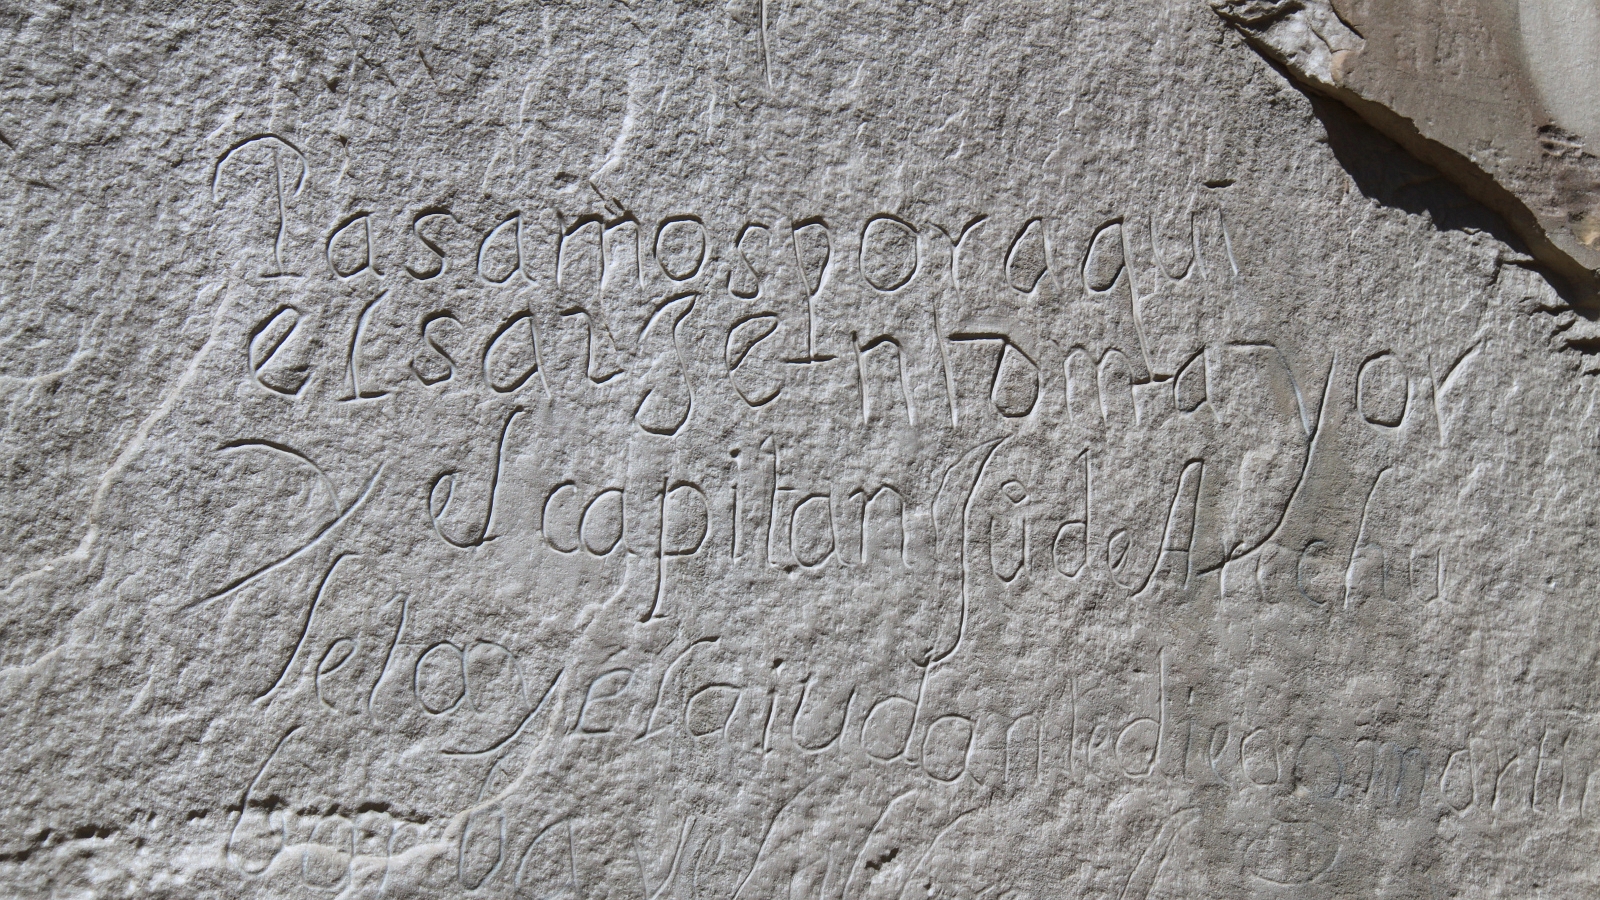 Pasamos por aqui
el sargento mayor
y el capitan Jude Arechu
leta y el aiudante diego martin
barba y el